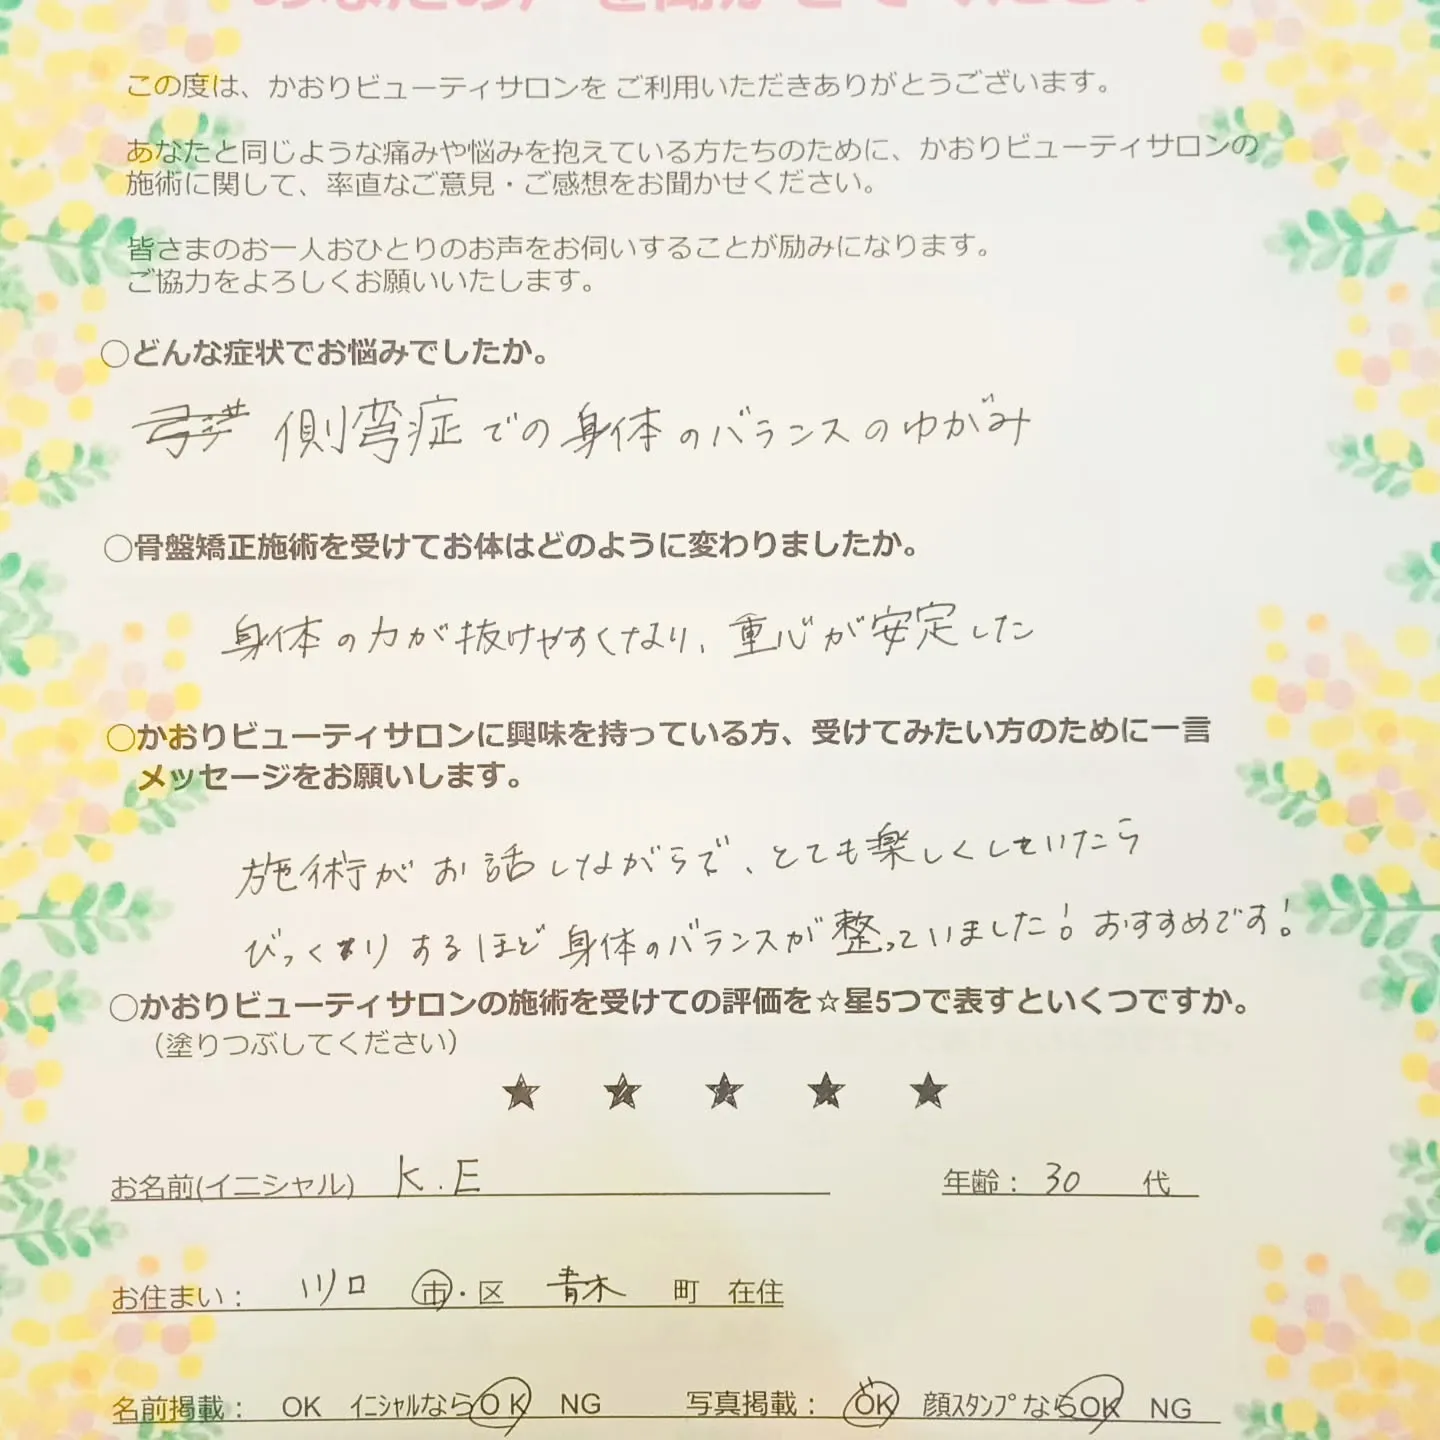 あなたの声を聞かせてください
この度は、かおりビューティサロンを ご利用いただきありがとうございます。
あなたと同じような痛みや悩みを抱えている方たちのために、かおりビューティサロンの
施術に関して、率直なご意見・ご感想をお聞かせください。
皆さまのお一人おひとりのお声をお伺いすることが励みになります。
ご協力をよろしくお願いいたします。
○どんな症状でお悩みでしたか。
側弯症での身体のバランスのゆがみ
○骨盤矯正施術を受けてお体はどのように変わりましたか。
身体の力が抜けやすくなり、重心が安定した
○かおりビューティサロンに興味を持っている方、受けてみたい方のために一言
メッセージをお願いします。
施術がお話しながらで、とても楽しくしていたら
びっくりするほど身体のバランスが整っていました！おすすめです！
○かおりビューティサロンの施術を受けての評価を☆星5つで表すといくつですか。
（塗りつぶしてください）
★ ★ ★ ★ ★
お名前(イニシャル) K.E 年齢： 30 代
お住まい： 川口 市・区 青木 町 在住
名前掲載： OK イニシャルならOK NG 写真掲載： OK 顔スタンプならOK NG